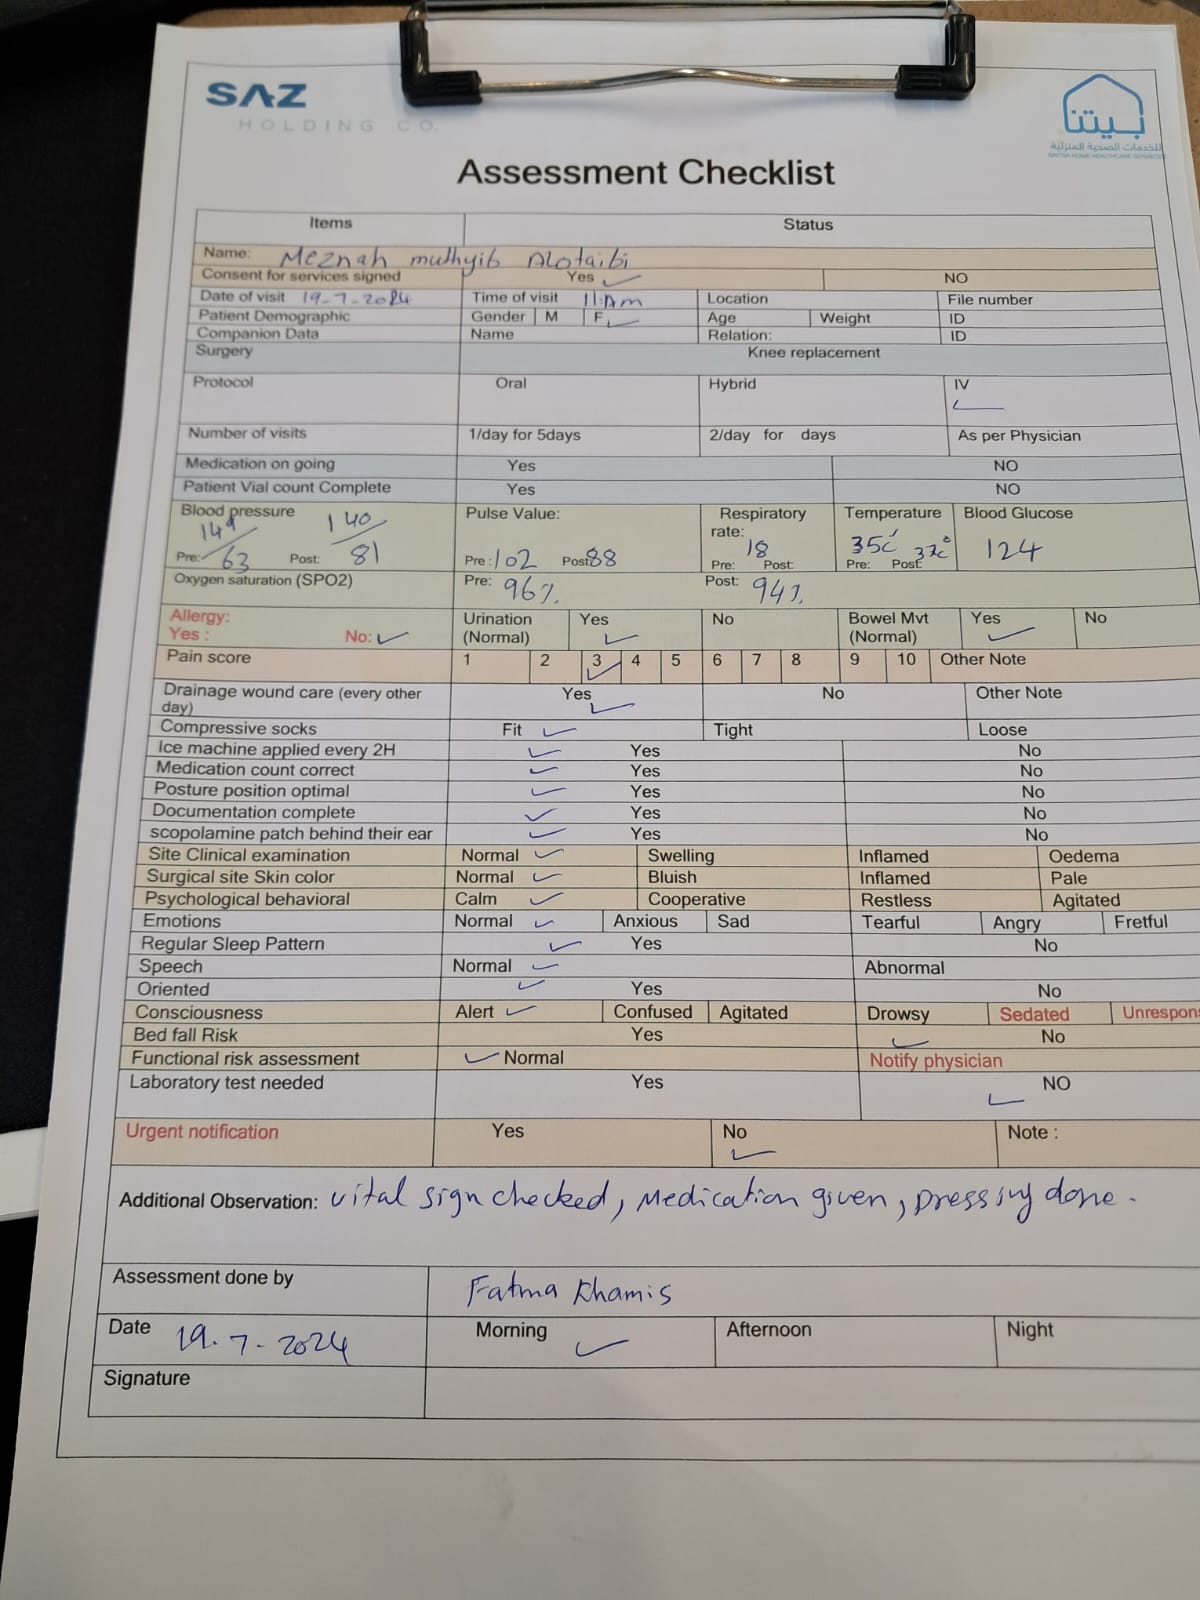 SAZ
HOLDING CO.
بيتنا
للخدمات الصحية المنزلية
BAITNA HOME HEALTHCARE SERVICES
Assessment Checklist
Items Status
Name: Meznah muthyib Alotaibi
Consent for services signed Yes ✓ NO
Date of visit 19-7-2024 Time of visit 11:Am Location File number
Patient Demographic Gender M F ✓ Age Weight ID
Companion Data Name Relation: ID
Surgery Knee replacement
Protocol Oral Hybrid IV ✓
Number of visits 1/day for 5days 2/day for days As per Physician
Medication on going Yes NO
Patient Vial count Complete Yes NO
Blood pressure Pre: 149/63 Post: 140/81 Pulse Value: Pre: 102 Post 88 Respiratory rate: 18 Pre: Post: Temperature 35c° 37c° Pre: Post: Blood Glucose 124
Oxygen saturation (SPO2) Pre: 96% Post: 94%
Allergy: Yes : No: ✓ Urination (Normal) Yes ✓ No Bowel Mvt (Normal) Yes ✓ No
Pain score 1 2 3 ✓ 4 5 6 7 8 9 10 Other Note
Drainage wound care (every other day) Yes ✓ No Other Note
Compressive socks Fit ✓ Tight Loose
Ice machine applied every 2H ✓ Yes No
Medication count correct ✓ Yes No
Posture position optimal ✓ Yes No
Documentation complete ✓ Yes No
scopolamine patch behind their ear ✓ Yes No
Site Clinical examination Normal ✓ Swelling Inflamed Oedema
Surgical site Skin color Normal ✓ Bluish Inflamed Pale
Psychological behavioral Calm ✓ Cooperative Restless Agitated
Emotions Normal ✓ Anxious Sad Tearful Angry Fretful
Regular Sleep Pattern ✓ Yes No
Speech Normal ✓ Abnormal
Oriented ✓ Yes No
Consciousness Alert ✓ Confused Agitated Drowsy Sedated Unrespons
Bed fall Risk Yes ✓ No
Functional risk assessment ✓ Normal Notify physician
Laboratory test needed Yes ✓ NO
Urgent notification Yes No ✓ Note :
Additional Observation: vital sign checked, Medication given, Dressing done.
Assessment done by Fatma Khamis
Date 19.7-2024 Morning ✓ Afternoon Night
Signature